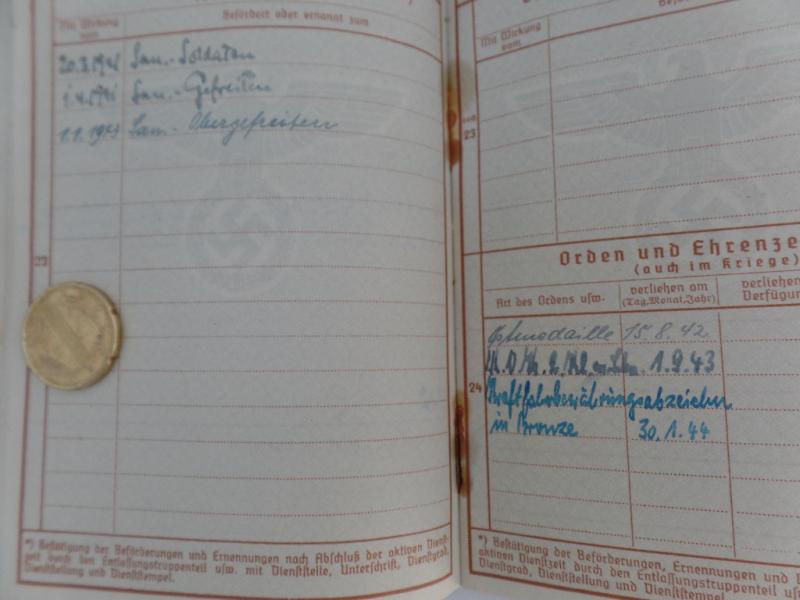 Mit Wirkung vom
Befördert oder ernannt zum
20.3.1941 San.-Soldaten
1.4.1941 San.-Gefreiten
1.1.1943 San.-Obergefreiten
23
*) Bestätigung der Beförderungen und Ernennungen nach Abschluß der aktiven Dienst-
zeit durch den Entlassungstruppenteil usw. mit Dienststelle, Unterschrift, Dienstgrad,
Dienststellung und Dienststempel.
Mit Wirkung vom
23
Orden und Ehrenze
(auch im Kriege)
Art des Ordens usw.
verliehen am
(Tag, Monat, Jahr)
verliehen
Verfügun
Ostmedaille 15.8.42
1.9.43
24
Kraftfahrbewährungsabzeichn
in Bronze 30.1.44
*) Bestätigung der Beförderungen, Ernennungen und
aktiven Dienstzeit durch den Entlassungstruppenteil us
Dienstgrad, Dienststellung und Dienststempel.